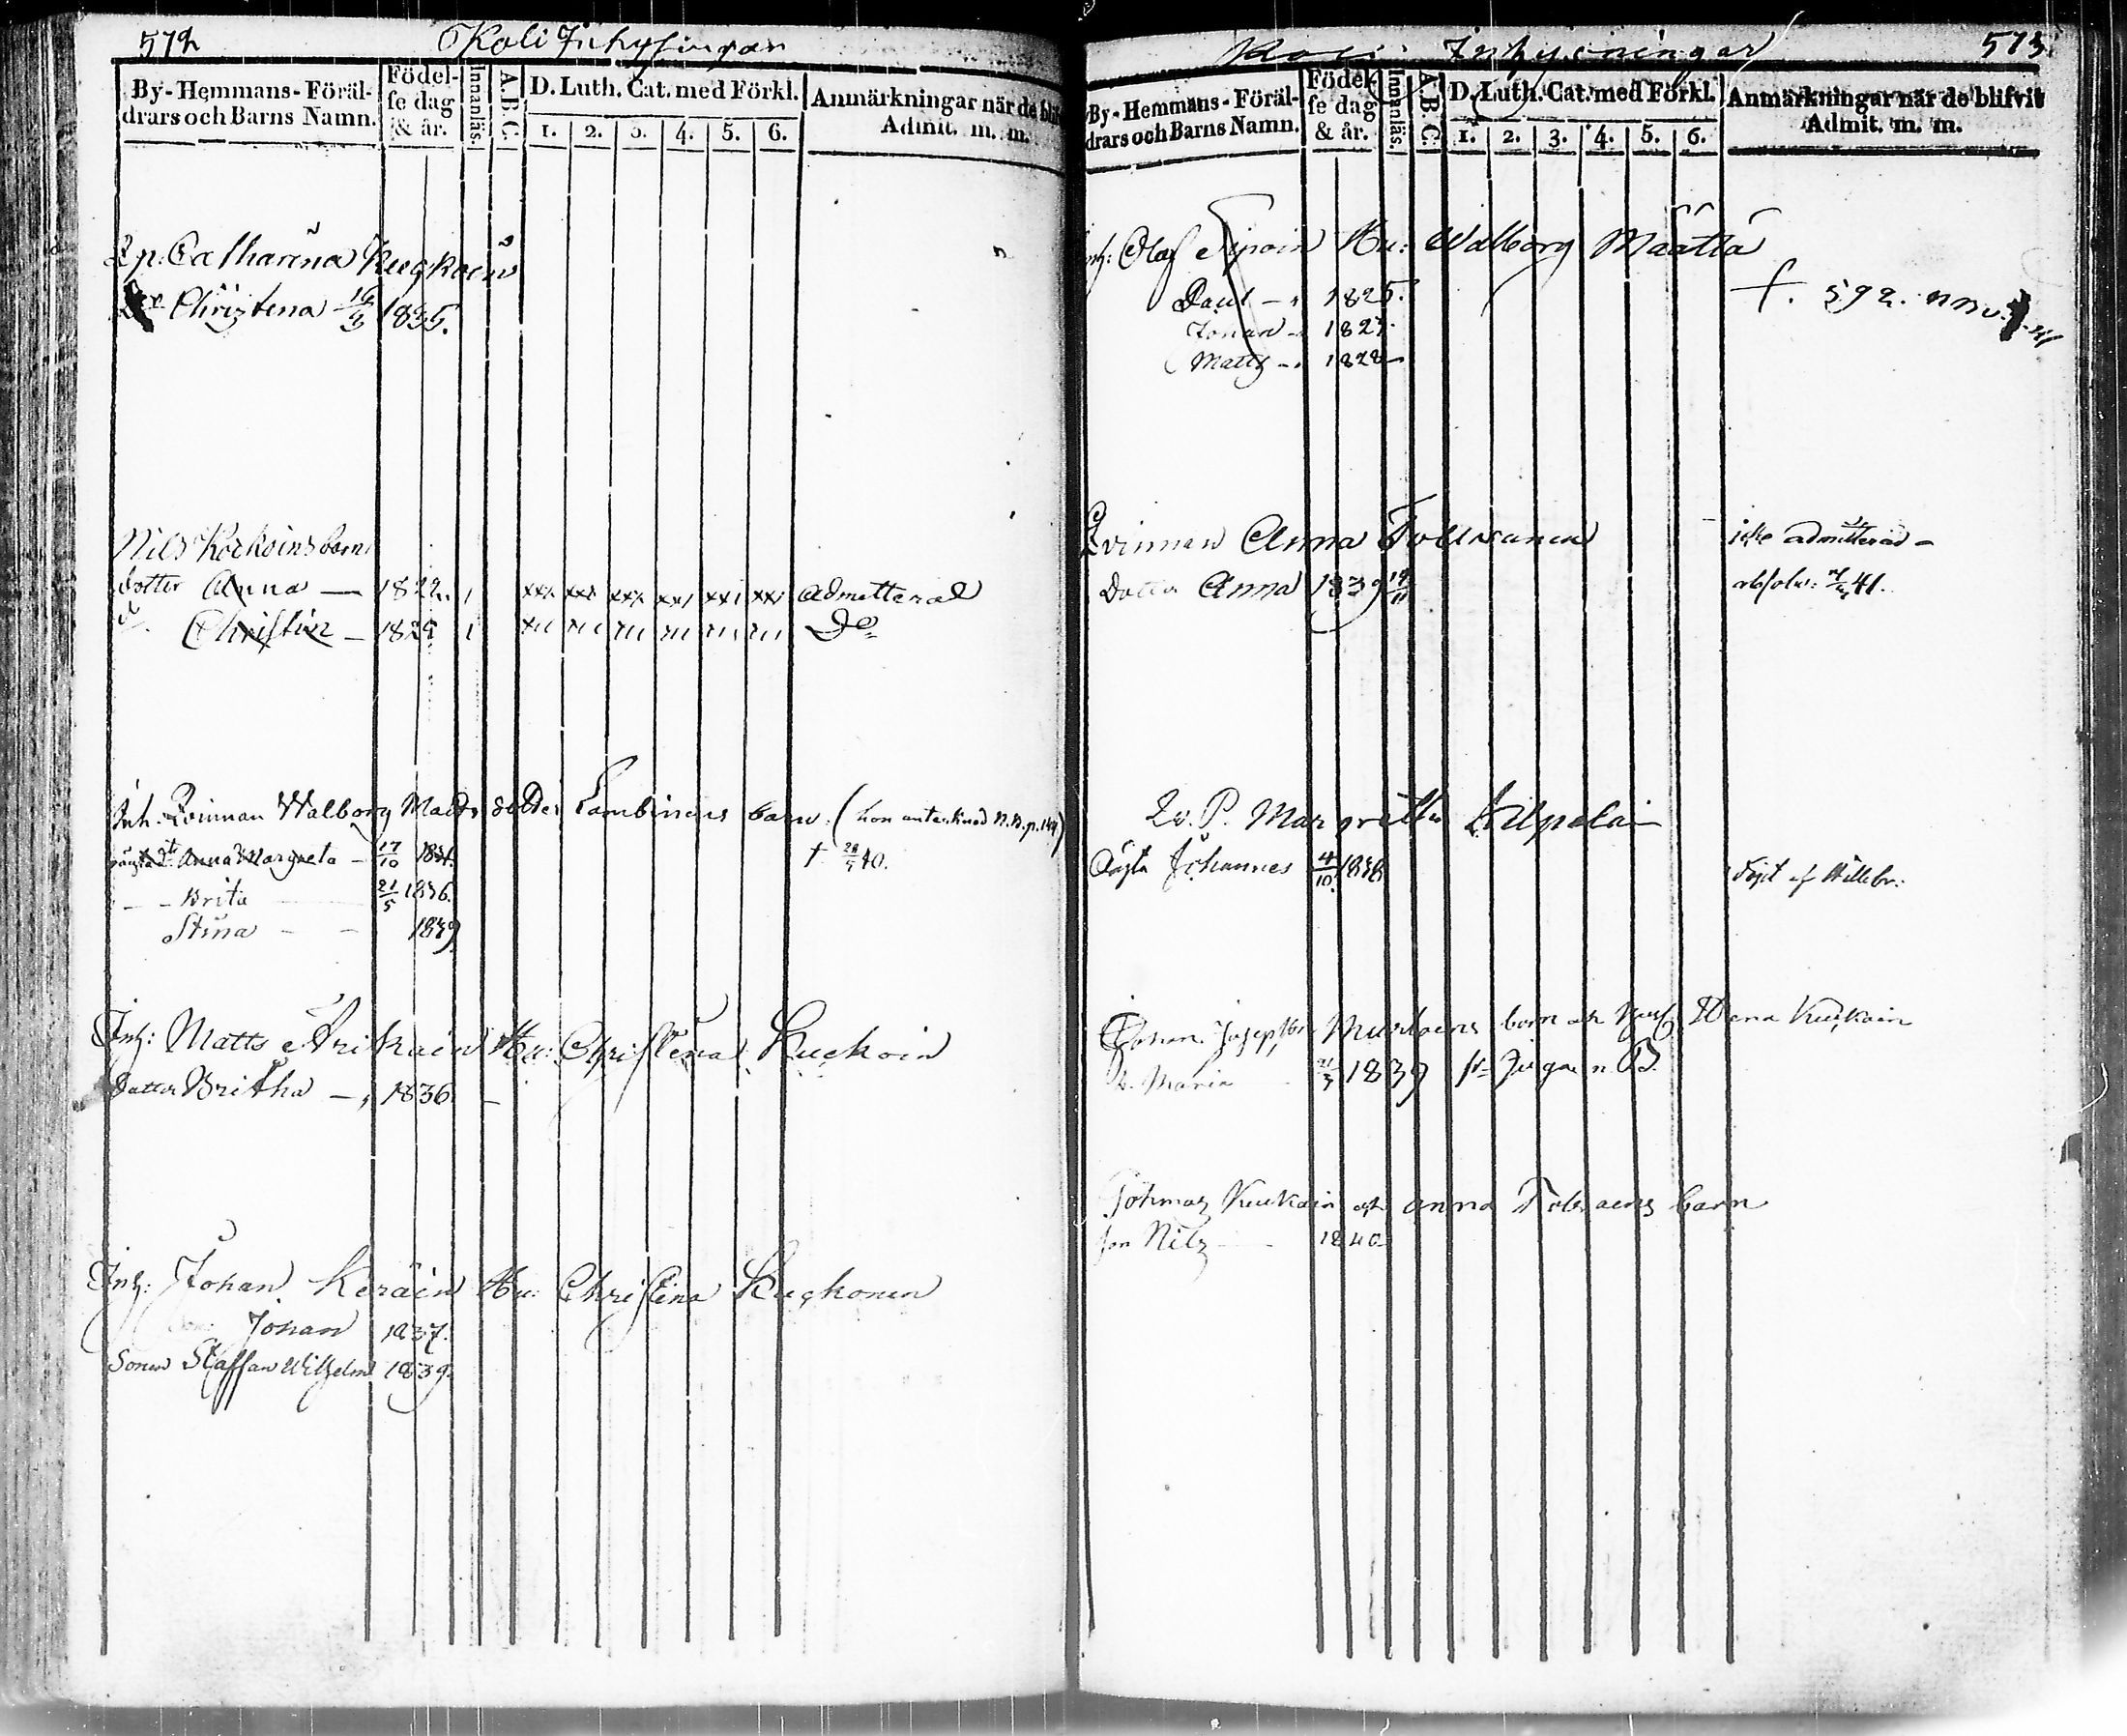 572
Koli Inhysingar
By-Hemmans-Föräl-
drars och Barns Namn.
Födel-
se dag
& år.
Innanläs.
A.B.C.
D. Luth. Cat. med Förkl.
1. 2. 3. 4. 5. 6.
Anmärkningar när de blif
Admit. m. m.
Qp: Catharina Kuckoin
Christena 1835.
Nils Kockoins barn
dotter Anna — 1822. 1 xxi xxi xxi xxi xxi xxi admitterad
d. Christin — 1829 1 Do
Inh. Qvinnan Walborg Matts dotter Lambinens barn. (hon antecknad N.B. p. 144)
oägta dt Anna Margreta — 17/10 1834. † 28/5 40.
— Brita 21/5 1836.
Stina — — 1839
Inh: Matts Arikain Hu: Christena Kuckoin
Dotter Britha — 1836
Inh: Johan Keräin Hu: Christina Kuckonen
Johan 1837.
Sonen Staffan Wilhelm 1839.
573.
Koli Inhysningar
By-Hemmans-Föräl-
drars och Barns Namn.
Födel-
se dag
& år.
Innanläs.
A.B.C.
D. Luth. Cat. med Förkl.
1. 2. 3. 4. 5. 6.
Anmärkningar när de blifvit
Admit. m. m.
Inh: Olof Hu: Walborg Määttä
Paul — 1825. f. 592.
Johan — 1827.
Matts — 1828
Qvinnan Anna Tolwanen icke admitterad —
Dotter Anna 1839 19/11 absolv: 41.
Qv. P. Margretha Kilpelain
Oägta Johannes 4/10 1838
Johan Josephs: Murtoins barn och Hust. Elena Kuckain
d. Maria 1839
Thomas Kuckain och Anna barn
son Nils — 1840